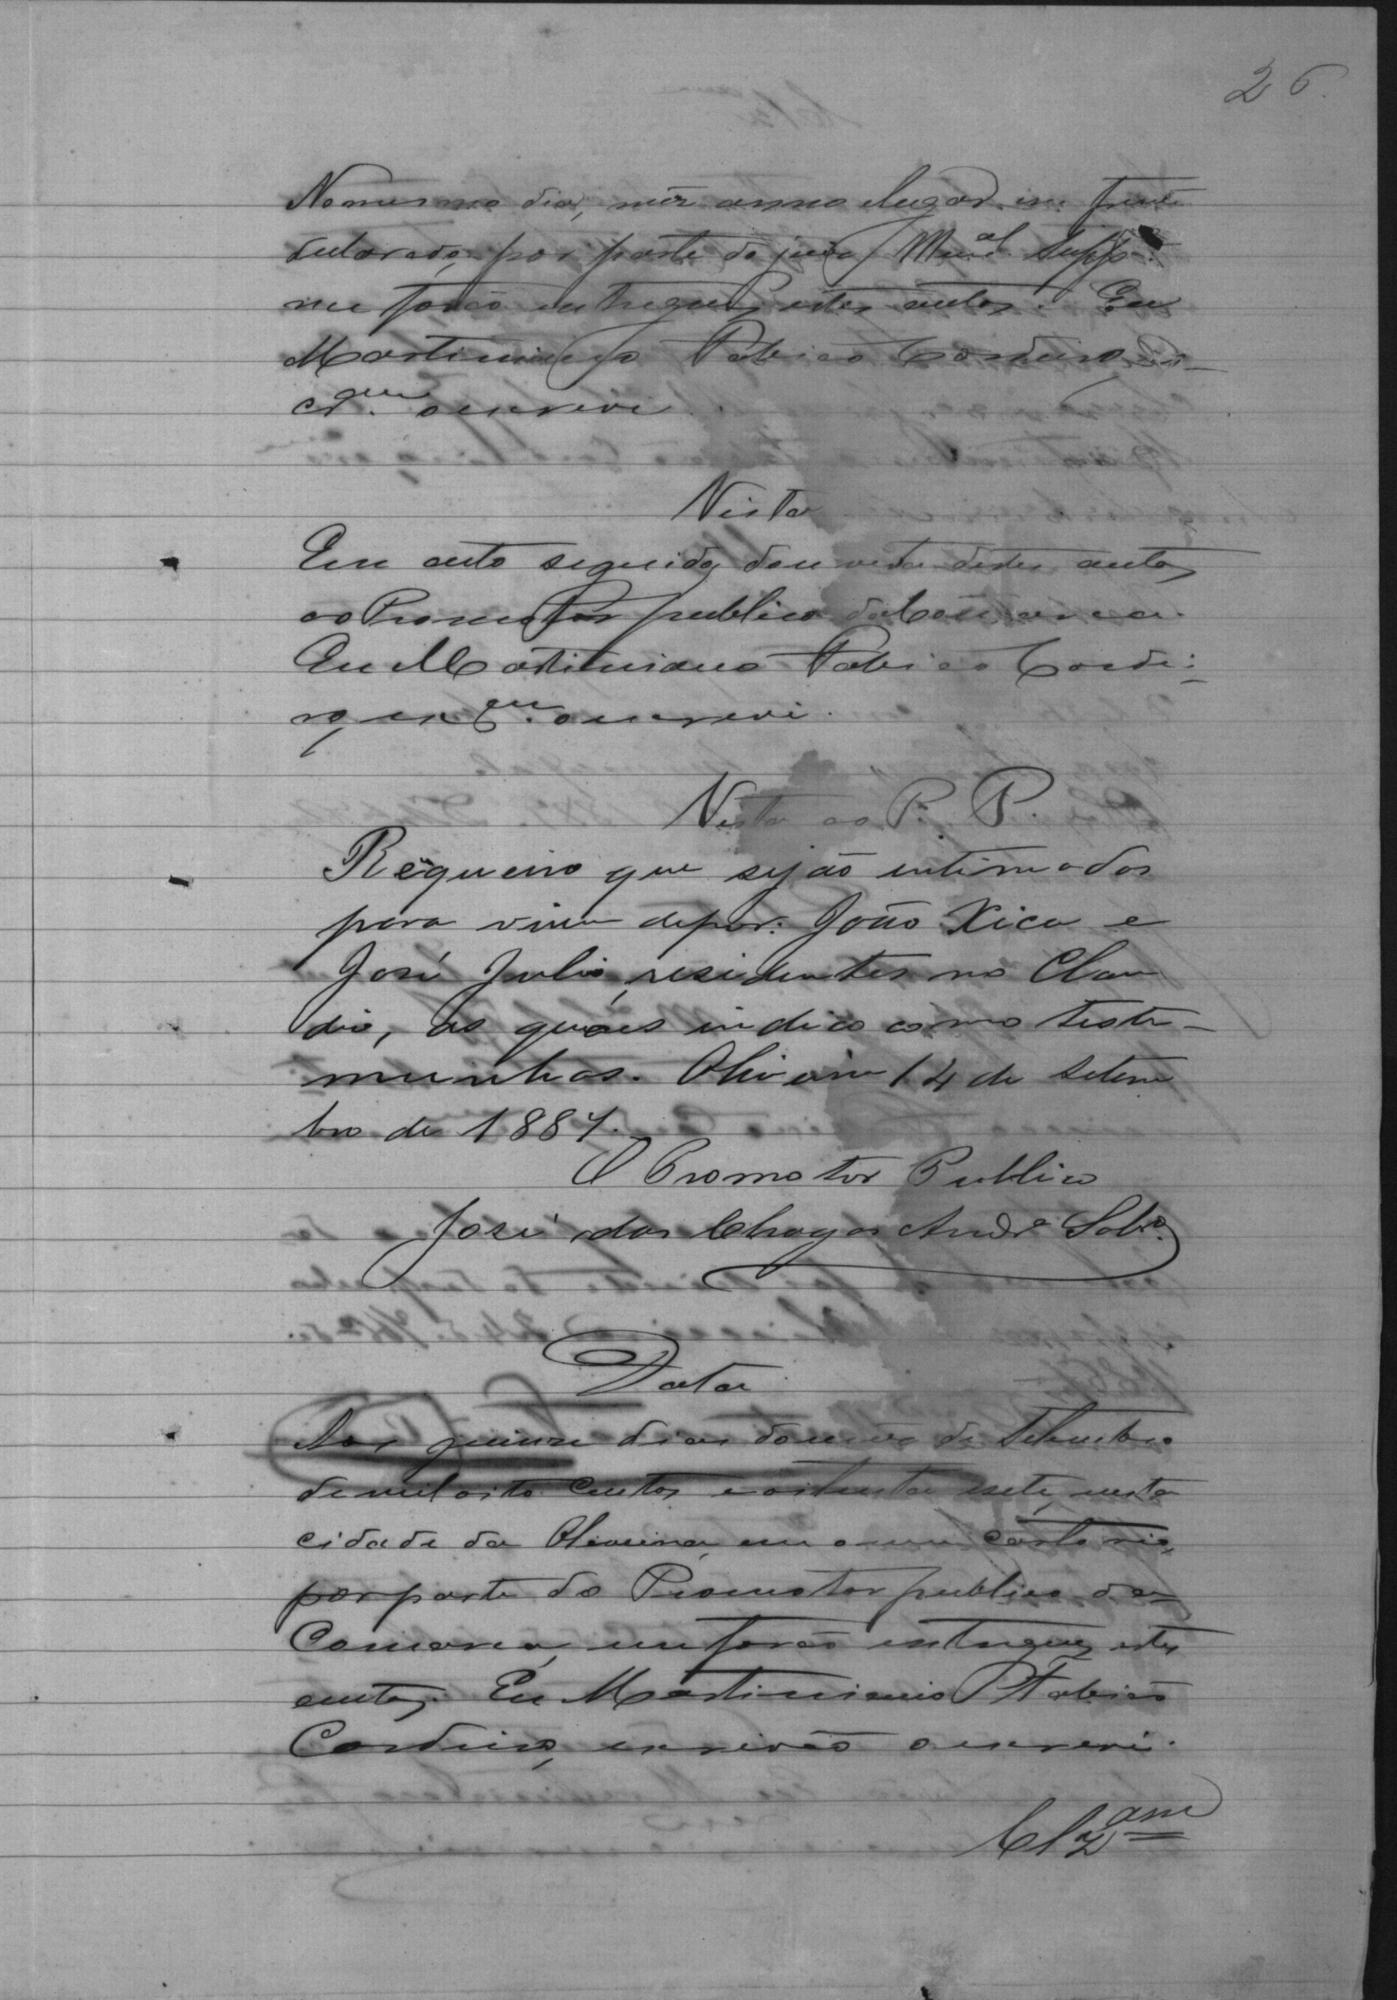 26.
No mesmo dia, mez anno e lugar em frente
declarado, por parte do juiz Mun.al Supp.e
me forão entregues estes autos. Eu
Martiniano Fabião Cordeiro, es-
cr. que o escrevi.
Vista
Em acto seguido, dou vista destes autos
ao Promotor publico da Comarca.
Eu Martiniano Fabião Cordei-
ro, que o escrevi.
Vista ao P. P.
Requeiro que sejão intimados
para virem depor: João Xica e
José Julio, residentes no Clau
dio, as quaes indico como teste-
munhas. Oliveira 14 de Setem
bro de 1887.
O Promotor Publico
José das Chagas Andr.e Sobr.o
Data
Aos quinze dias do mez de Setembro
de mil oito centos e oitenta e sete, nesta
cidade da Oliveira, em o meu cartorio,
por parte do Promotor publico da
Comarca, me forão entregues estes
autos. Eu Martiniano Fabião
Cordeiro, escrivão o escrevi.
Clzam